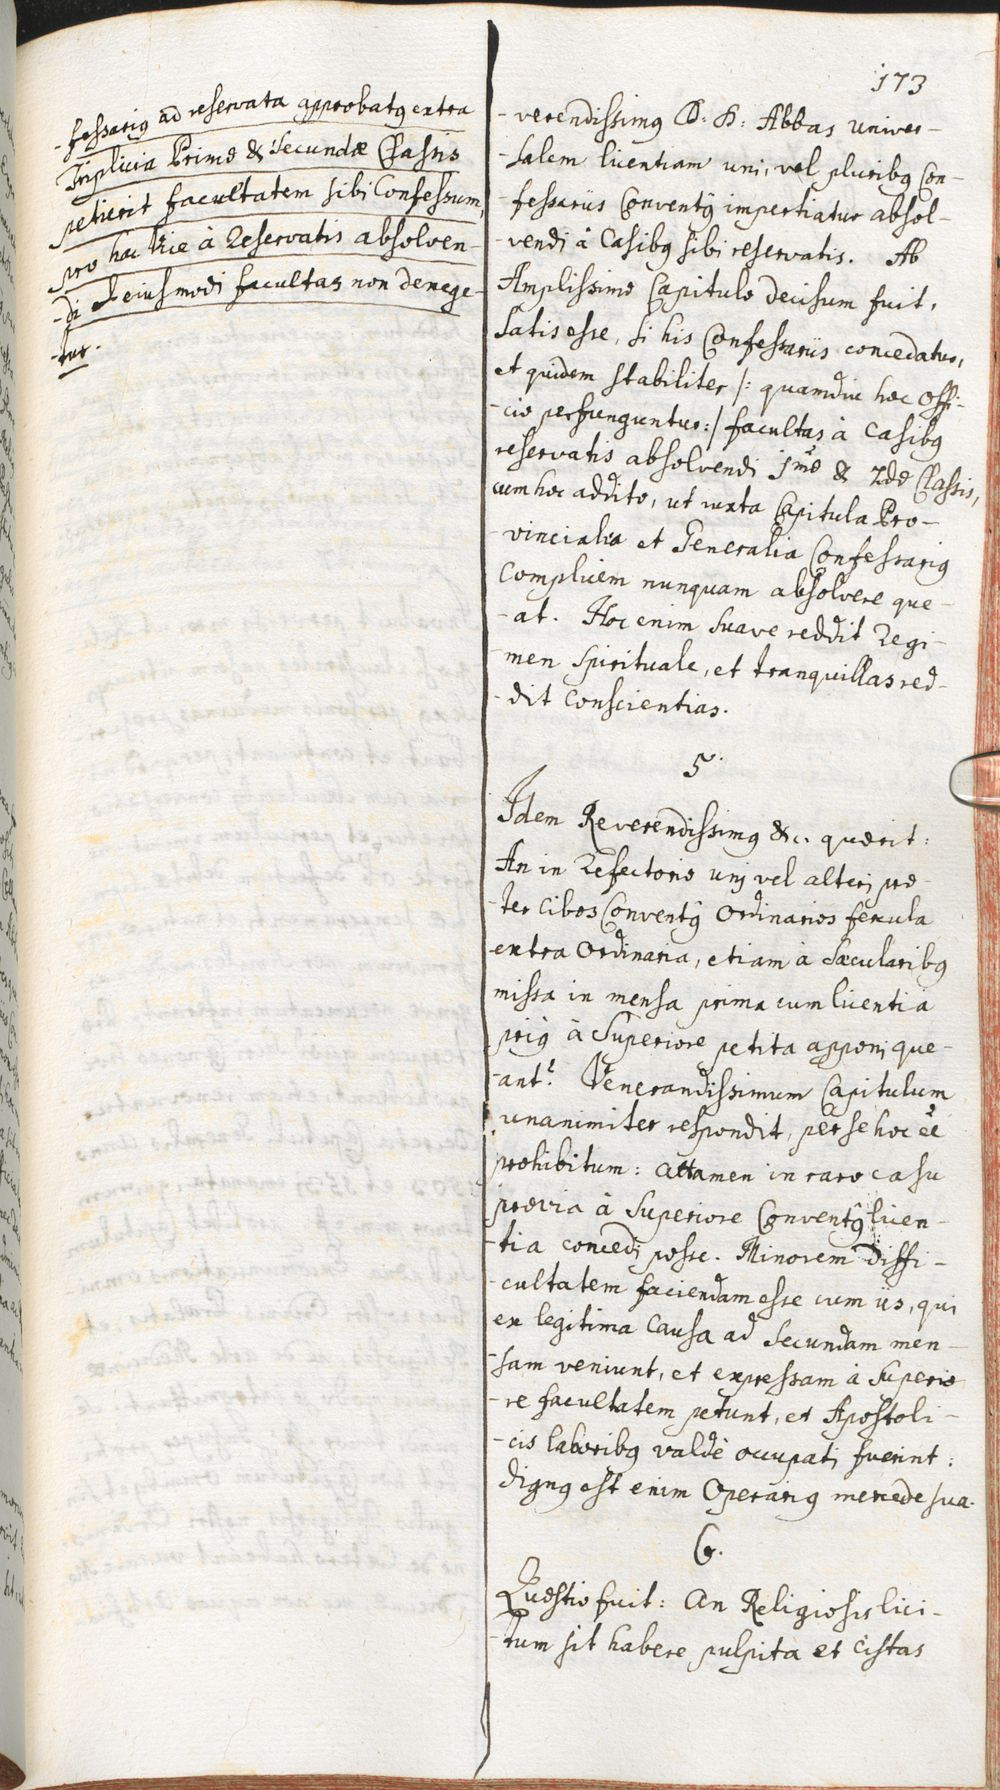 173
-fessariꝯ ad reservata approbatꝯ extra
Triplicia Primæ & Secundæ Classis
petierit facultatem sibi Confessum,
pro hac vice à Reservatis absolven-
-di & eiusmodi facultas non denege-
-tur.
-verendissimꝯ D: H: Abbas univer-
-salem licentiam uni, vel pluribꝯ Con-
-fessariis Conventꝯ impertiatur absol-
-vendi à Casibꝯ sibi reservatis. Ab
Amplissimo Capitulo decisum fuit,
Satis esse, si his Confessariis concedatur,
et quidem stabiliter /: quamdiu hoc offi-
-cio perfunguntur:/ facultas à Casibꝯ
reservatis absolvendi 1mæ & 2dæ Classis,
cum hoc addito, ut iuxta Capitula Pro-
-vincialia et Generalia Confessariꝯ
Complicem nunquam absolvere que-
-at. Hoc enim suave reddit Regi-
-men Spirituale, et tranquillas red-
-dit Conscientias.
5.
Idem Reverendissimꝯ &c. quærit:
An in Refectorio uni vel alteri præ-
-ter Cibos Conventꝯ Ordinarios fercula
extra Ordinaria, etiam à Sæcularibꝯ
missa in mensa prima cum licentia
priꝯ à Superiore petita apponi que-
-ant? Venerandissimum Capitulum
unanimiter respondit, per se hoc ee
prohibitum: attamen in raro casu
prævia à Superiore Conventꝯ licen-
-tia concedi posse. Minorem diffi-
-cultatem faciendam esse cum iis, qui
ex legitima Causa ad Secundam men-
-sam veniunt, et expressam à Superio-
-re facultatem petunt, et Apostoli-
-cis laboribꝯ valdè occupati fuerint:
dignꝯ est enim Operariꝯ mercede sua.
6.
Quæstio fuit: An Religiosis lici-
-tum sit habere pulpita et Cistas